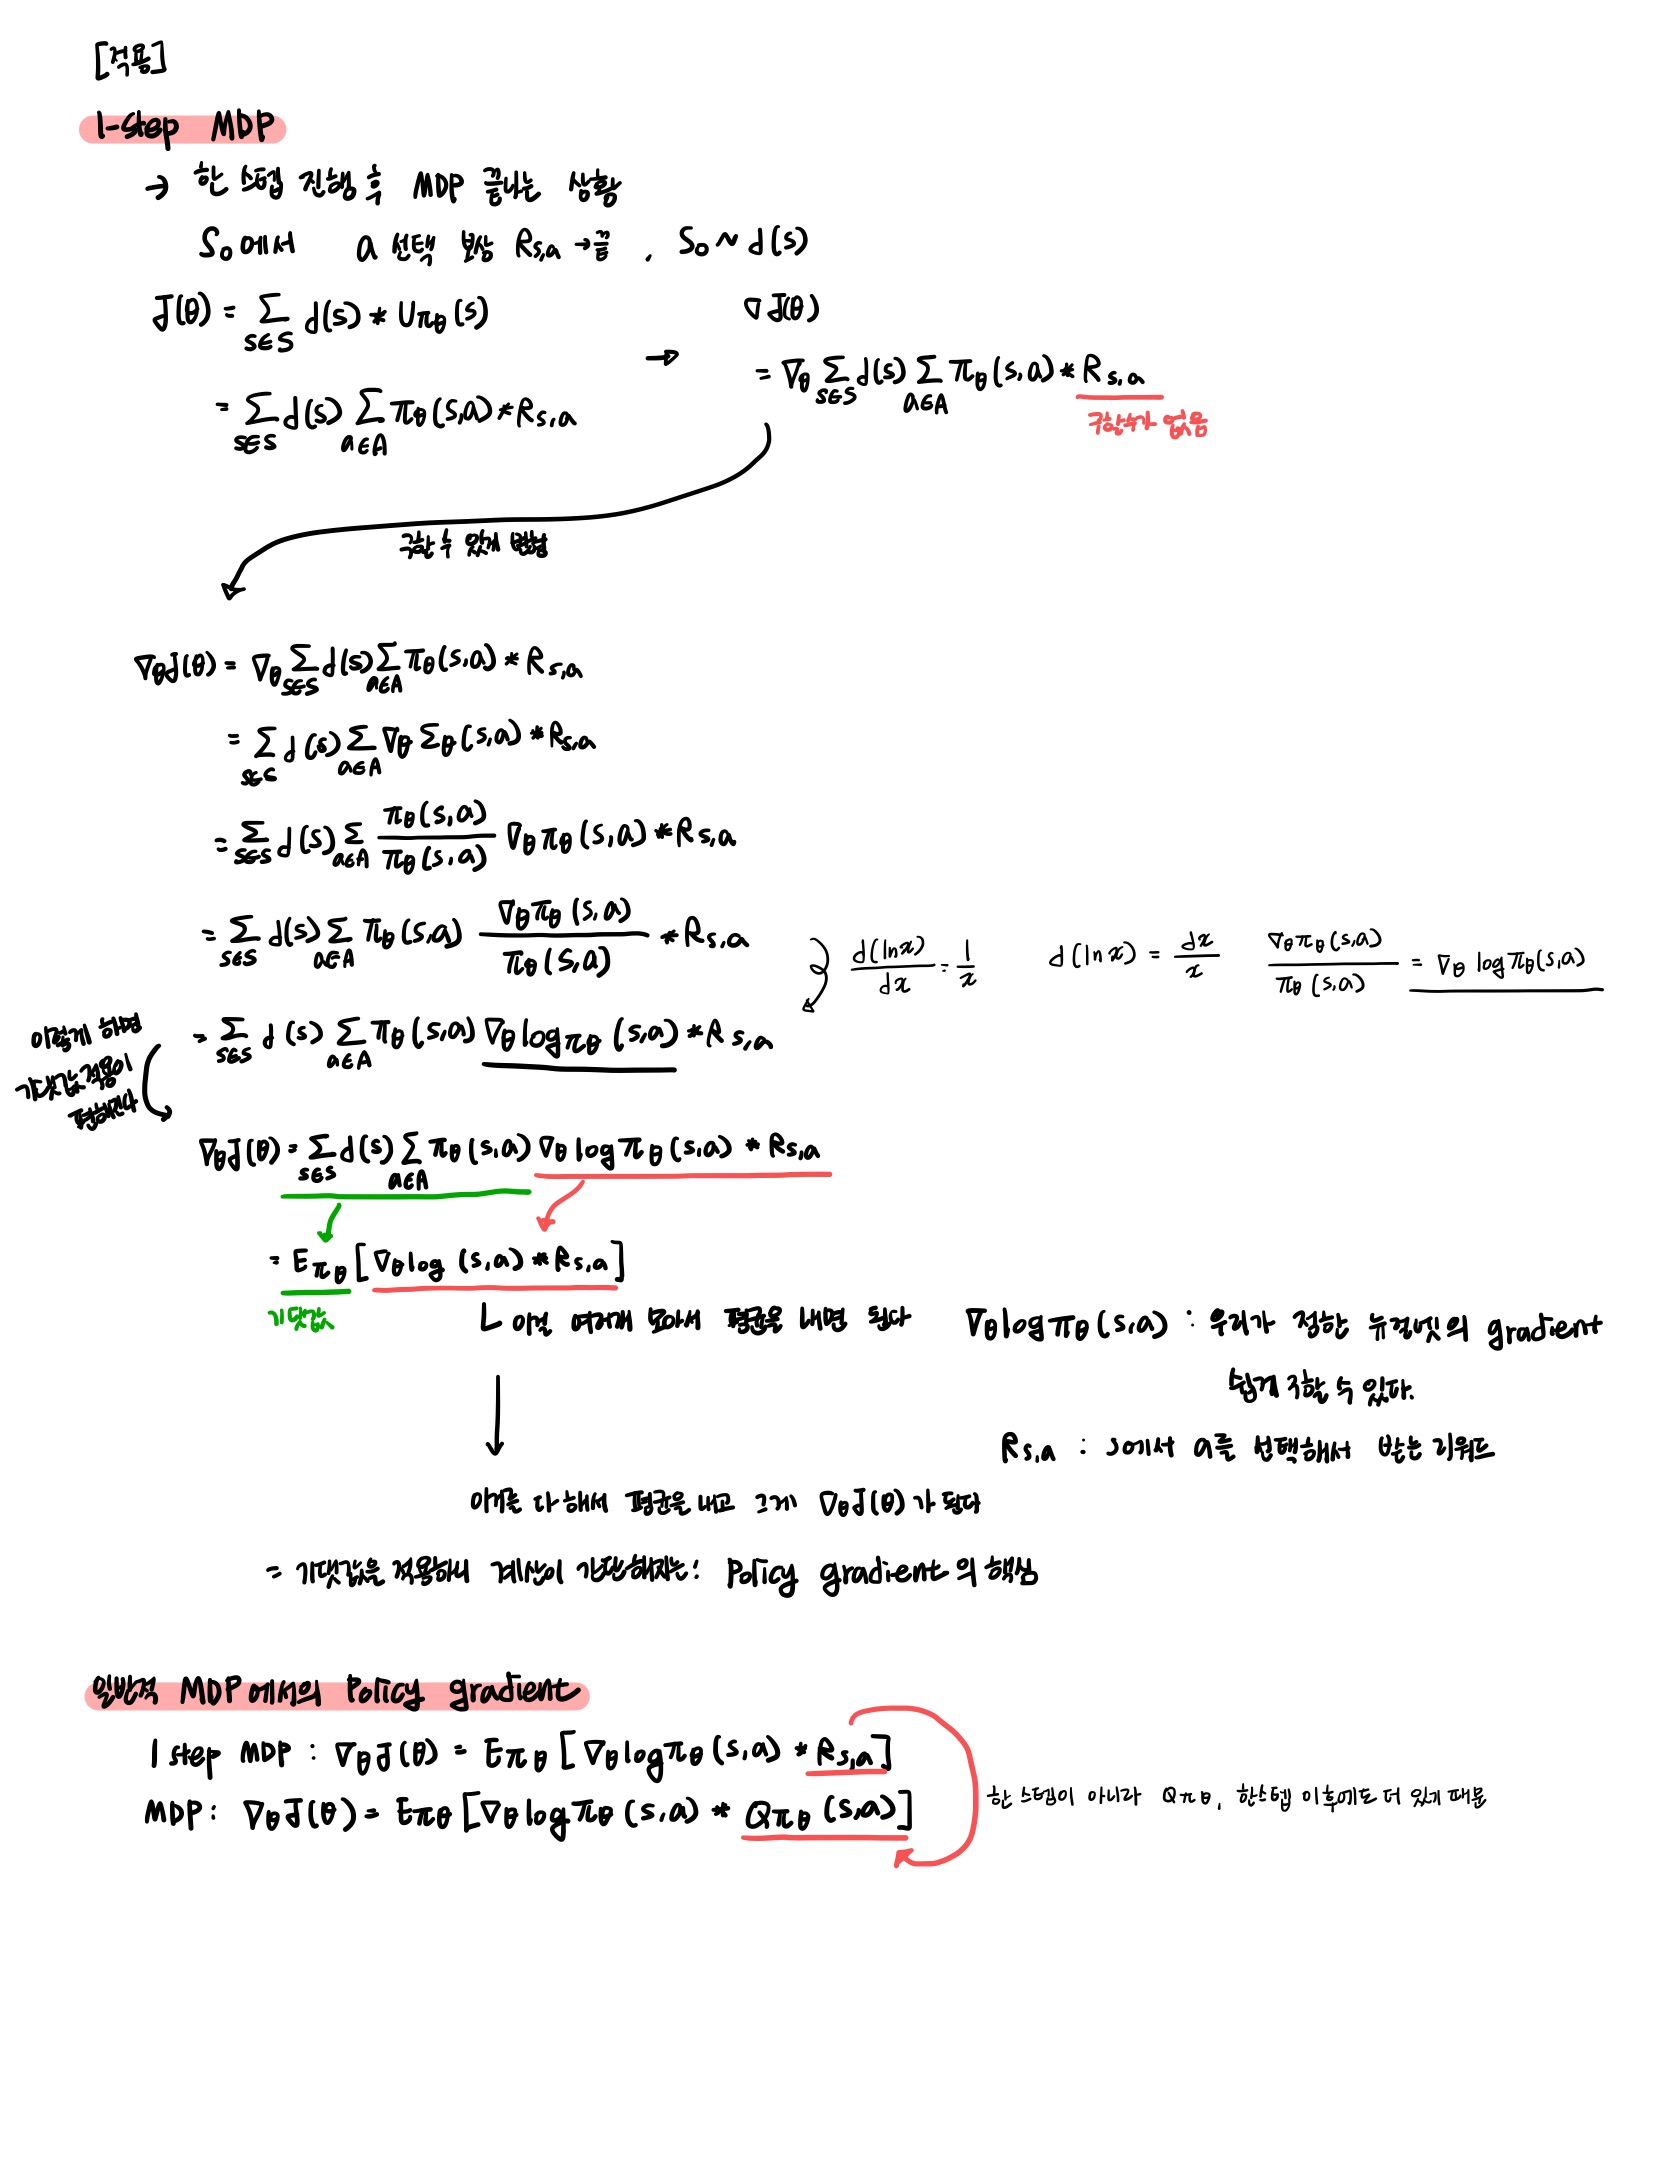 [적용]
1-step MDP
→ 한 스텝 진행 후 MDP 끝나는 상황
S₀에서 a 선택 보상 R_{s,a} → 끝 . S₀ ~ d(s)
J(θ) = Σ_{s∈S} d(s) * U_{πθ}(s)
= Σ_{s∈S} d(s) Σ_{a∈A} π_θ(s,a) * R_{s,a}
→
∇J(θ)
= ∇_θ Σ_{s∈S} d(s) Σ_{a∈A} π_θ(s,a) * R_{s,a}
구할수가 없음
구할 수 있게 변형
∇_θJ(θ) = ∇_θ Σ_{s∈S} d(s) Σ_{a∈A} π_θ(s,a) * R_{s,a}
= Σ_{s∈S} d(s) Σ_{a∈A} ∇_θ Σ_θ(s,a) * R_{s,a}
= Σ_{s∈S} d(s) Σ_{a∈A} π_θ(s,a)/π_θ(s,a) ∇_θ π_θ(s,a) * R_{s,a}
= Σ_{s∈S} d(s) Σ_{a∈A} π_θ(s,a) ∇_θπ_θ(s,a)/π_θ(s,a) * R_{s,a}
d(lnx)/dx = 1/x d(lnx) = dx/x ∇_θπ_θ(s,a)/π_θ(s,a) = ∇_θ logπ_θ(s,a)
= Σ_{s∈S} d(s) Σ_{a∈A} π_θ(s,a) ∇_θ log_{πθ}(s,a) * R_{s,a}
이렇게 하면
기댓값 적용이
편해진다
∇_θJ(θ) = Σ_{s∈S} d(s) Σ_{a∈A} π_θ(s,a) ∇_θ logπ_θ(s,a) * R_{s,a}
= E_{πθ} [∇_θ log (s,a) * R_{s,a}]
기댓값
ㄴ 이걸 여러개 모아서 평균을 내면 된다
∇_θ logπ_θ(s,a) : 우리가 정한 뉴럴넷의 gradient
쉽게 구할 수 있다.
R_{s,a} : s에서 a를 선택해서 받는 리워드
이게를 다 해서 평균을 내고 그게 ∇_θJ(θ)가 된다
= 기댓값을 적용하니 계산이 간단해지는! Policy gradient의 핵심
일반적 MDP에서의 Policy gradient
1 step MDP : ∇_θJ(θ) = E_{πθ} [∇_θ logπ_θ(s,a) * R_{s,a}]
MDP : ∇_θJ(θ) = E_{πθ} [∇_θ logπ_θ(s,a) * Q_{πθ}(s,a)]
한 스텝이 아니라 Q_{πθ}, 한스텝 이후에도 더 있게 때문